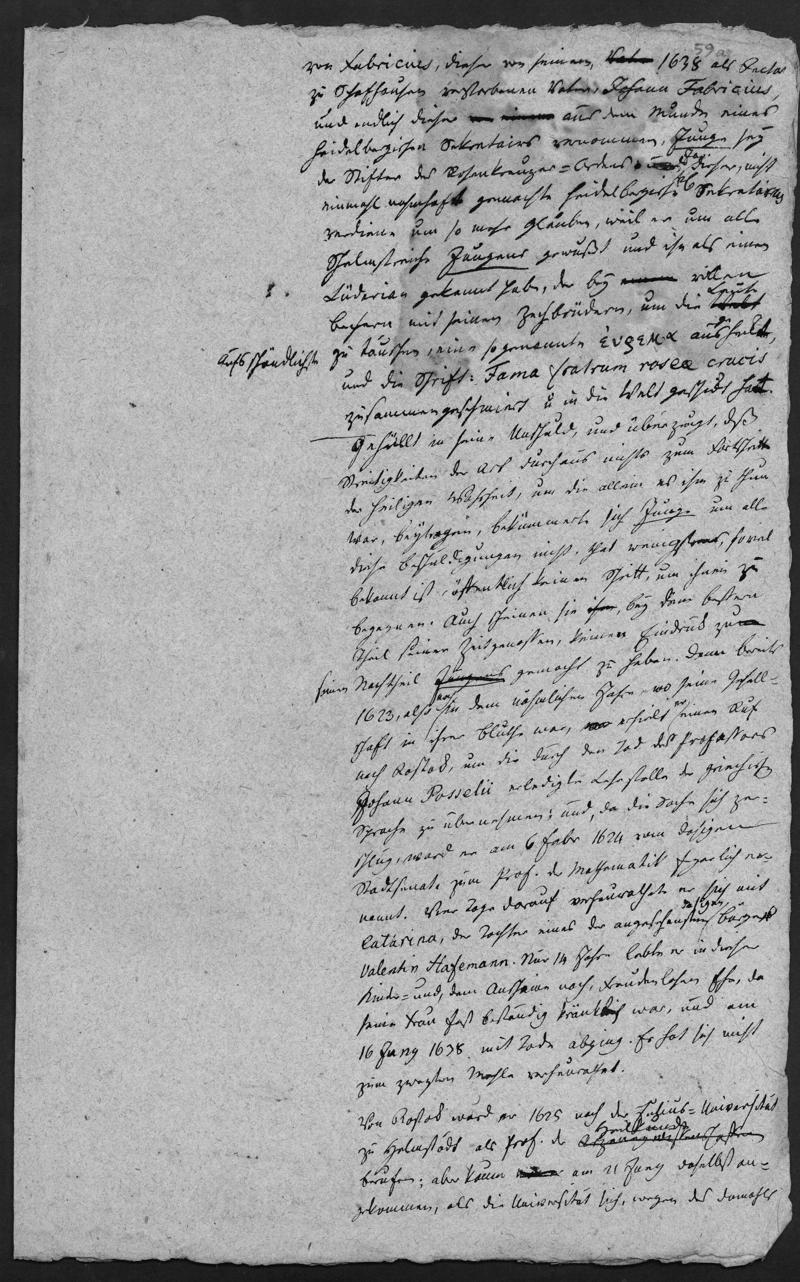 59
von Fabricius, dieser von seinem, 1638 als Rector
zu Schafhausen verstorbenen Vater, Johann Fabricius,
und endlich dieser aus dem Munde eines
Heidelbergischen Sekretairs vernommen, Junge sey
der Stifter des Rosenkreuzer-Ordens. dieser, nicht
einmahl nahmhaft gemachte Heidelbergische Sekretär
verdiene um so mehr Glauben, weil er um alle
Schelmstreiche Jungens gewußt und ihn als einen
Lüderian gekannt habe, der bey vollen
Bechern mit seinen Zechbrüdern, um die Leute
aufs schändlichste
zu täuschen, eine sogenannte ausgeheckt,
und die Schrift: Fama fratrum roseae crucis
zusammengeschmiert u in die Welt geschickt hätte.
Gehüllt in seine Unschuld, und überzeugt, daß
Streitigkeiten der Art durchaus nichts zum Fortschritt
der heiligen Wahrheit, um die allein es ihm zu thun
war, beytragen, bekümmerte sich Junge um alle
diese Beschuldigungen nicht, that wenigstens, soviel
bekannt ist, öffentlich keinen Schritt, um ihnen zu
begegnen. Auch scheinen sie, bey dem bessern
Theil seiner Zeitgenossen, keinen Eindruck zu
seinem Nachtheil gemacht zu haben. Denn bereits
1623, also in dem nähmlichen Jahre wo seine Gesell-
schaft in ihrer Blüthe war, erhielt er einen Ruf
nach Rostock, um die durch den Tod des Professors
Johann Posselii erledigte Lehrstelle der griechisch
Sprache zu übernehmen; und, da die Sache sich zer-
schlug, ward er am 6 Febr 1624 vom dasigen
Stadtsenate zum Prof. der Mathematik feyerlich er-
nannt. Vier Tage darauf verheurathete er sich mit
Catarina, der Tochter eines der angesehensten dasigen Bürgers
Valentin Hafemann. Nur 14 Jahre lebte er in dieser
Kinder- und, dem Anscheine nach, freudenlosen Ehe, da
seine Frau fast beständig kränklich war, und am
16 Juny 1638 mit Tode abging. Er hat sich nicht
zum zweyten Mahle verheurathet.
Von Rostock ward er 1625 nach der Julius-Universität
zu Helmstädt als Prof. der Heilkunde
berufen; aber kaum am 21 Juny daselbst an-
gekommen, als die Universität sich, wegen des damahls